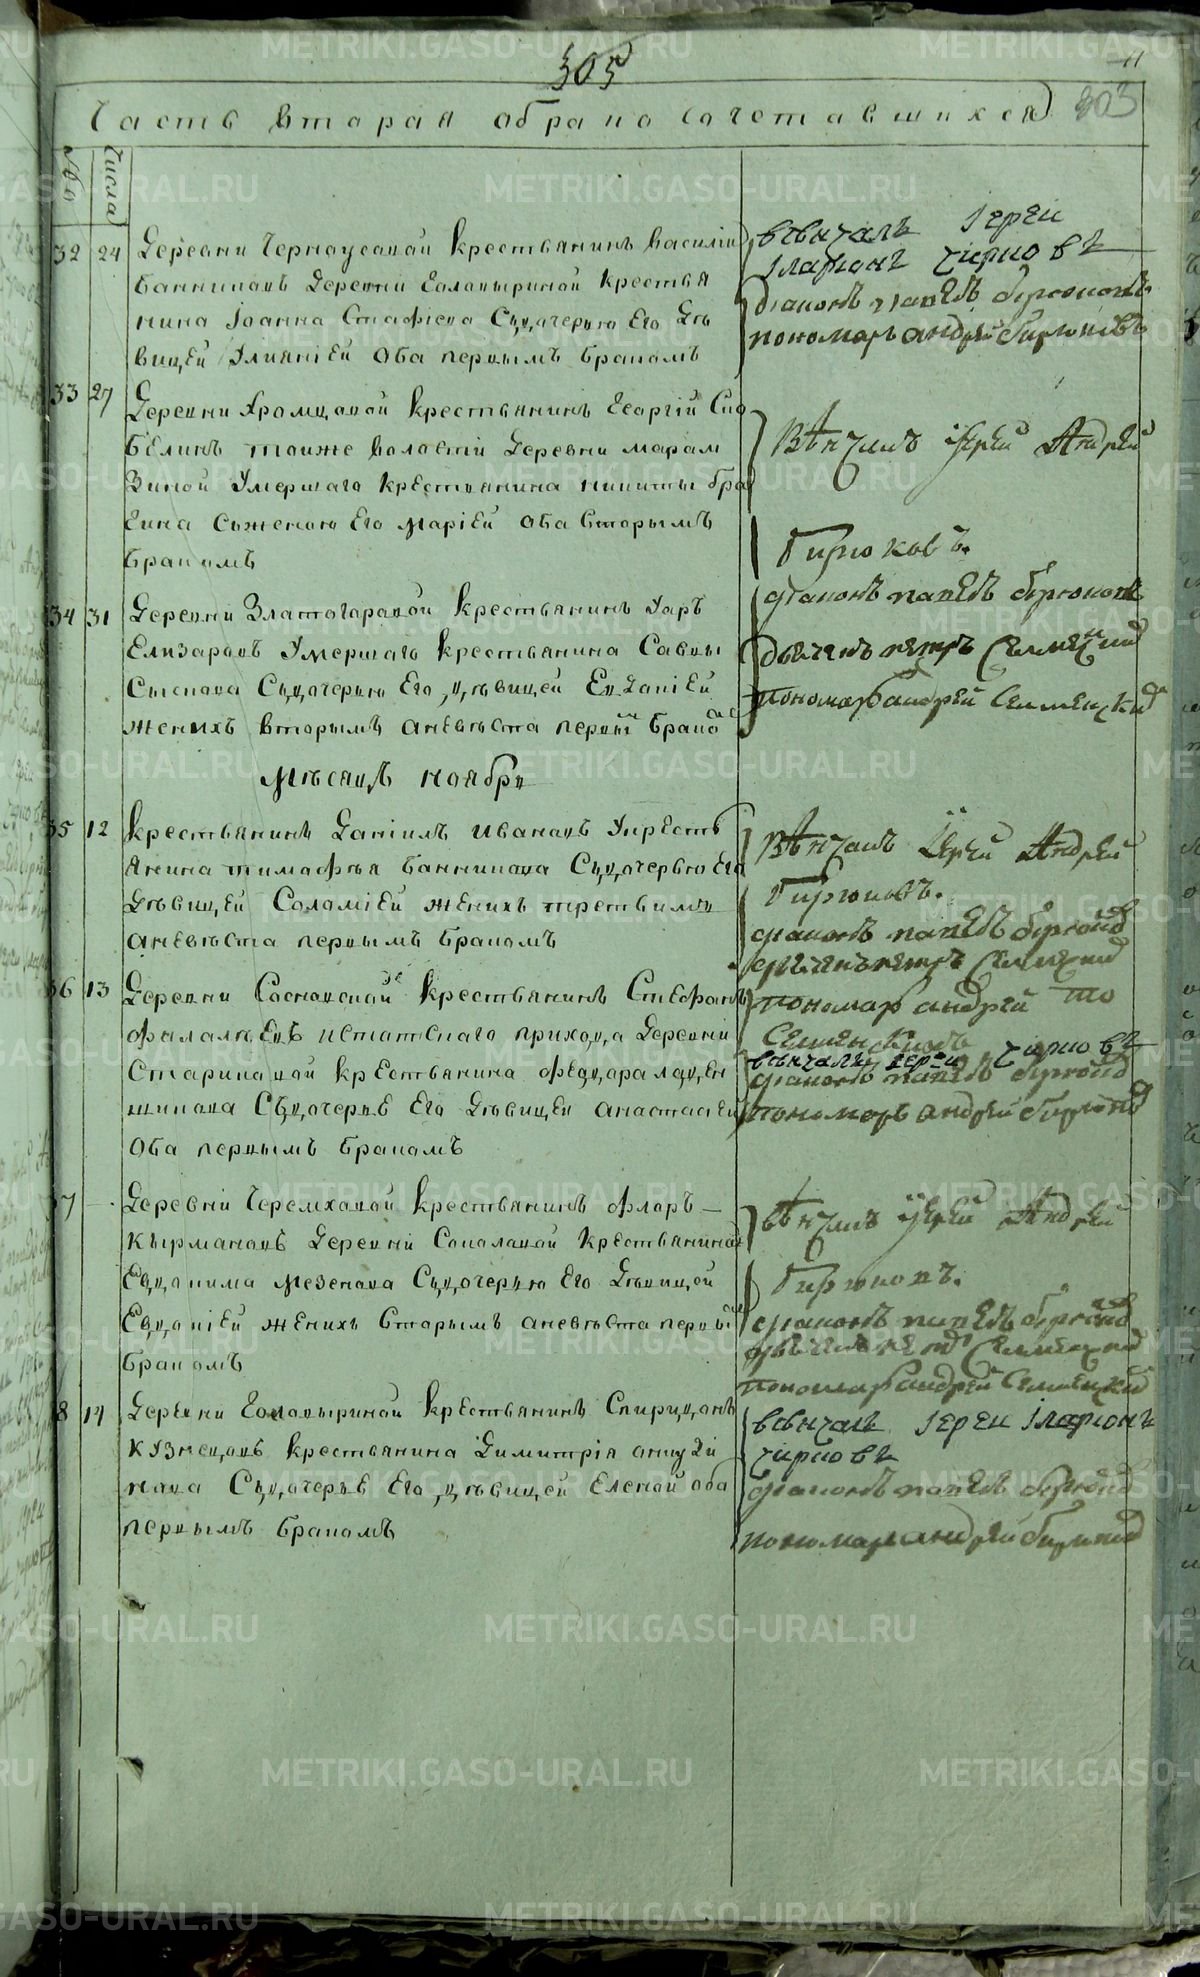 305
303
Часть вторая обрано сочетавшихся
Числа
32 24 Деревни Черноусовой крестьянинъ василій
Банниковъ Деревни Головыриной крестья
нина Іоанна Стафѣева Съдочерью Его Дѣ
вицей Улияніей Оба первымъ бракомъ
вѣнчалъ Іерей
Іларионъ Чирковъ
діаконъ павелъ бирюковъ
пономарь андрей бирюковъ
33 27 Деревни Хромцовой крестьянинъ Георгій
тоиже волостій Деревни марам
зиной Умершаго крестьянина никиты
Съженою Его Маріей Оба вторымъ
бракомъ
Вѣнчалъ Іерей Андрей
Бирюковъ.
34 31 Деревни Златогоровой крестьянинъ Уаръ
Елизаровъ Умершаго крестьянина Саввы
Съдочерью Его дѣвицей
женихъ вторымъ аневѣста первый бракомъ
діаконъ павелъ бирюковъ
дьячекъ петръ Селменскій
пономарь андрей Селменскій
Мѣсяцъ ноябрь
35 12 крестьянинъ Даніилъ Ивановъ Укресть
янина тимофѣя банникова Съдочерью Его
Дѣвицей Соломіей женихъ третьимъ
аневѣста первымъ бракомъ
Вѣнчалъ Іерей Андрей
Бирюковъ.
діаконъ павелъ бирюковъ
дьячекъ петръ Селменскій
36 13 Деревни Сосновской крестьянинъ Стефанъ
фалалѣевъ Истатскаго прихода Деревни
Стариковой крестьянина
Съдочерью Его Дѣвицей анастасіей
Оба первымъ бракомъ
пономарь андрей
вѣнчалъ Іерей Чирковъ
діаконъ павелъ бирюковъ
пономарь андрей бирюковъ
37 Деревни Черемховой крестьянинъ флоръ
кырмановъ Деревни Соколовой крестьянина
Евдокима мезенова Съдочерью Его Дѣвицей
Евдокіей женихъ вторымъ аневѣста первый
бракомъ
вѣнчалъ Іерей Андрей
Бирюковъ.
діаконъ павелъ бирюковъ
дьячекъ петръ Селменскій
пономарь андрей Селменскій
38 14 Деревни Головыриной крестьянинъ Спиридонъ
кузнецовъ крестьянина Димитрія
Съдочерью Его дѣвицей Еленой оба
первымъ бракомъ
вѣнчалъ Іерей Іларіонъ
Чирковъ
діаконъ павелъ бирюковъ
пономарь андрей бирюковъ
METRIKI.GASO-URAL.RU